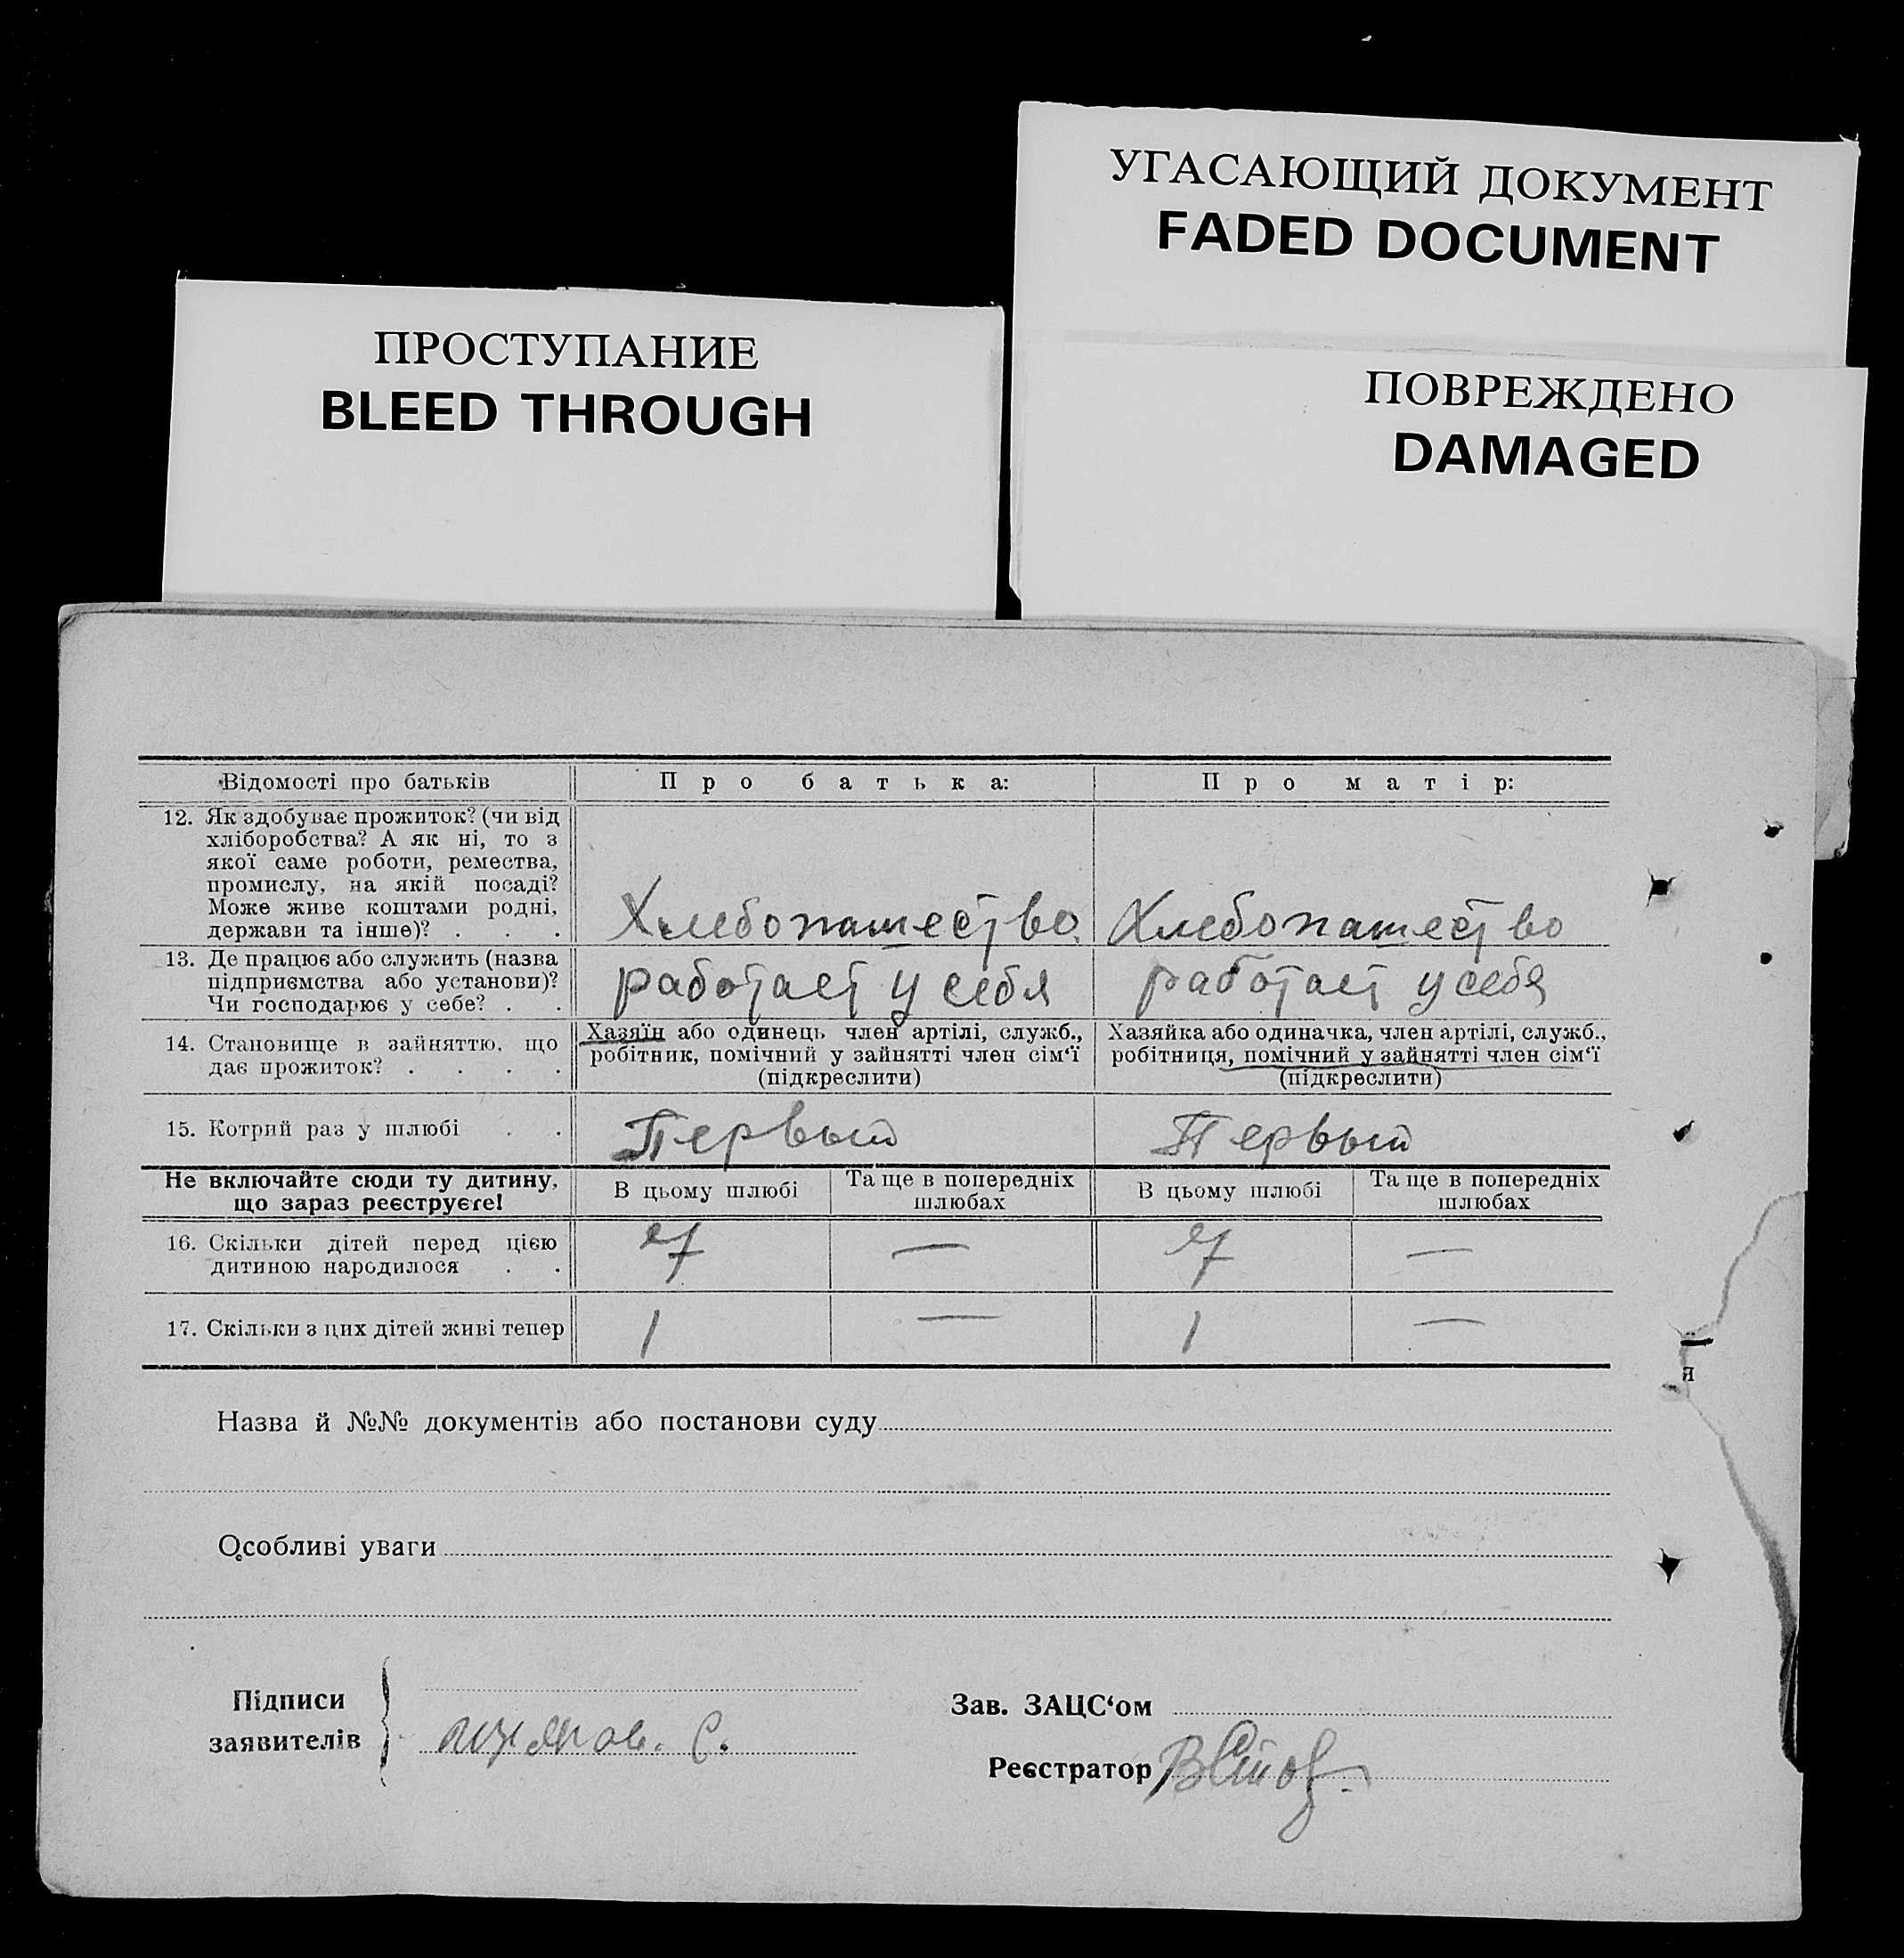 УГАСАЮЩИЙ ДОКУМЕНТ
FADED DOCUMENT
ПРОСТУПАНИЕ
BLEED THROUGH
ПОВРЕЖДЕНО
DAMAGED
Відомості про батьків
Про батька:
Про матір:
12. Як здобуває прожиток? (чи від
хліборобства? А як ні, то з
якої саме роботи, ремества,
промислу, на якій посаді?
Може живе коштами родні,
держави та інше)? . . .
Хлебопашество
Хлебопашество
13. Де працює або служить (назва
підприємства або установи)?
Чи господарює у себе? . .
работает у себя
работает у себя
14. Становище в зайняттю, що
дає прожиток? . . . .
Хазяїн або одинець член артілі, служб.,
робітник, помічний у зайнятті член сім‘ї
(підкреслити)
Хазяйка або одиначка, член артілі, служб.,
робітниця, помічний у зайнятті член сім‘ї
(підкреслити)
15. Котрий раз у шлюбі . .
Первый
Первый
Не включайте сюди ту дитину,
що зараз реєструєте!
В цьому шлюбі
Та ще в попередніх
шлюбах
В цьому шлюбі
Та ще в попередніх
шлюбах
16. Скільки дітей перед цією
дитиною народилося . .
—
—
17. Скільки з цих дітей живі тепер
1
—
1
—
я
Назва й №№ документів або постанови суду
Особливі уваги
Підписи
заявителів
С.
Зав. ЗАЦС‘ом
Реєстратор